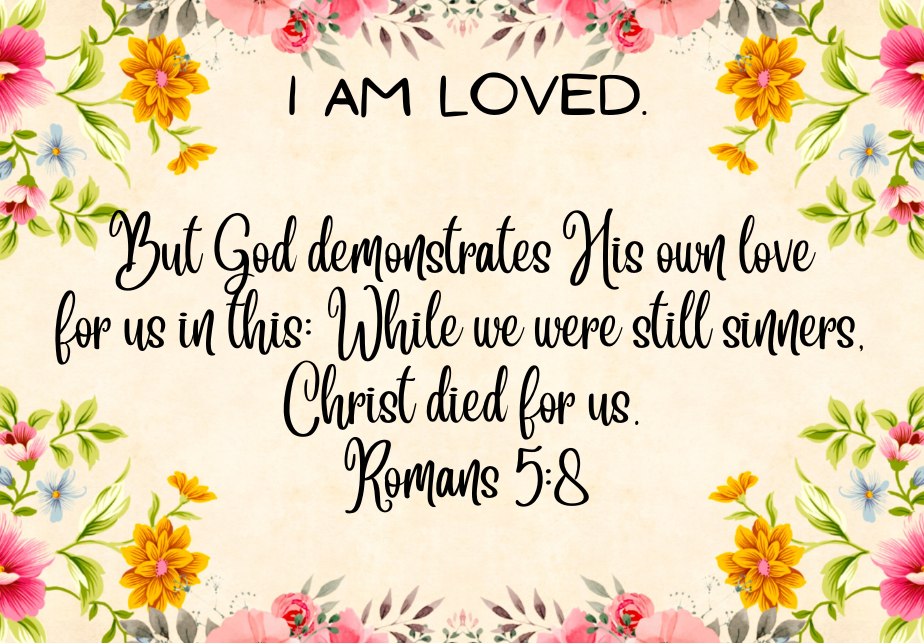 I AM LOVED.
But God demonstrates His own love
for us in this: While we were still sinners,
Christ died for us.
Romans 5:8